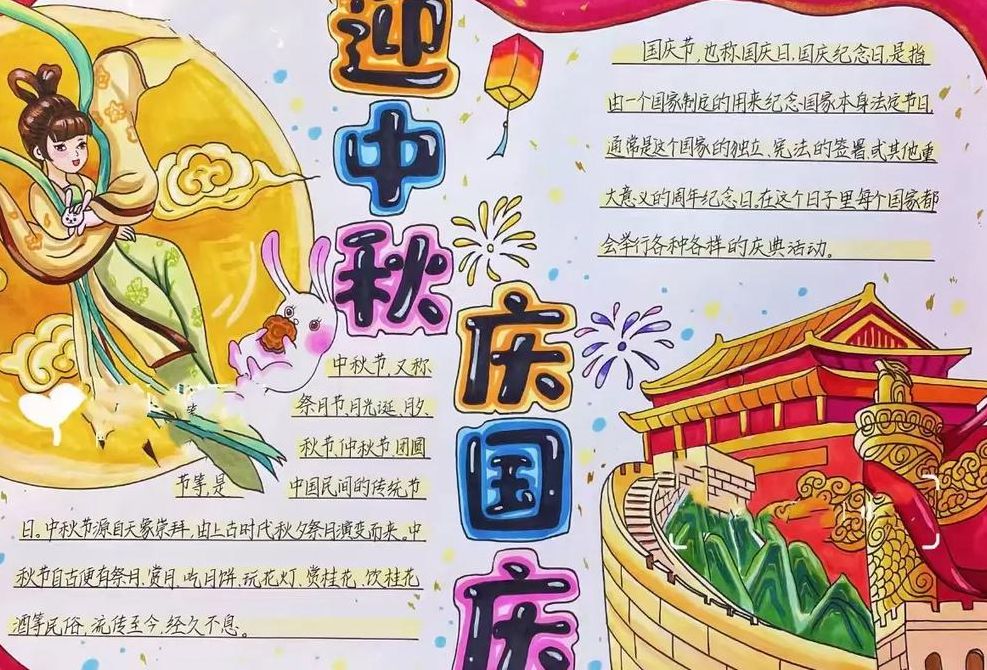 迎中秋
庆国庆
国庆节,也称国庆日,国庆纪念日,是指
由一个国家制定的用来纪念国家本身法定节日,
通常是这个国家的独立、宪法的签署或其他重
大意义的周年纪念日,在这个日子里每个国家都
会举行各种各样的庆典活动。
中秋节,又称
祭月节,月光诞、月夕、
秋节、仲秋节、团圆
节等,是 中国民间的传统节
日。中秋节源自天象崇拜,由上古时代秋夕祭月演变而来。中
秋节自古便有祭月、赏月、吃月饼、玩花灯、赏桂花、饮桂花
酒等民俗,流传至今,经久不息。